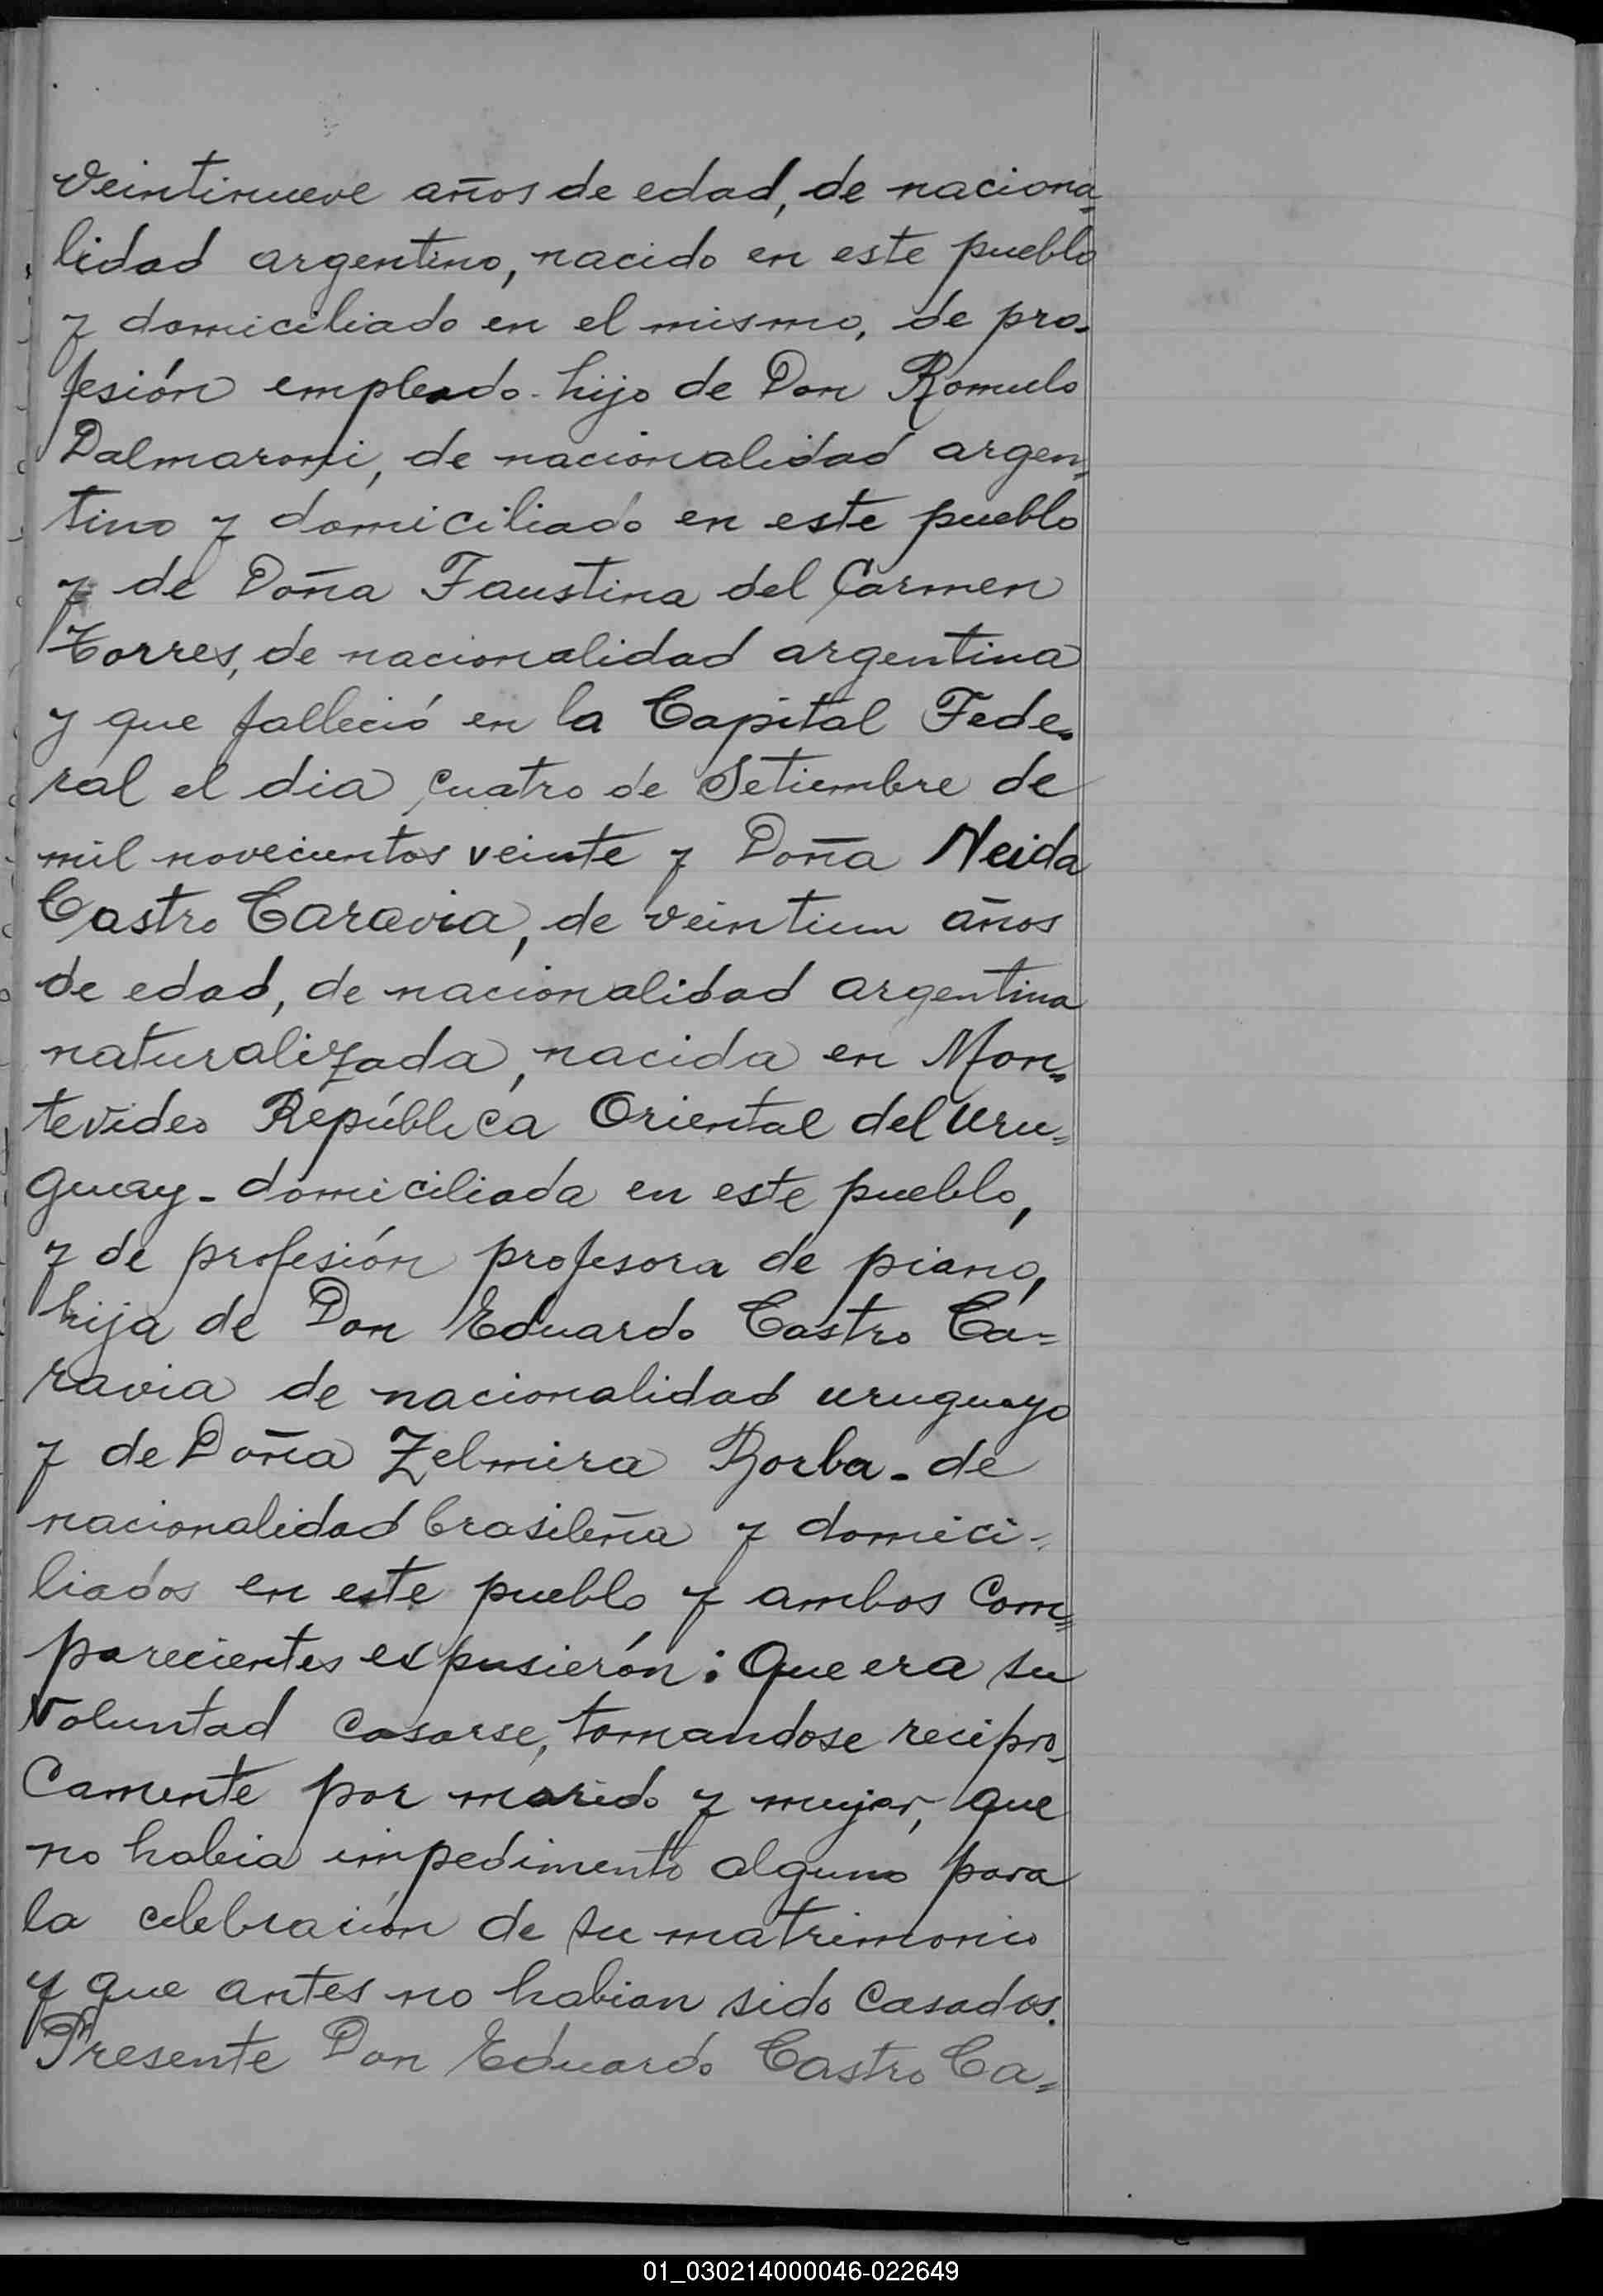 veintinueve años de edad, de naciona-
lidad argentino, nacido en este pueblo
y domiciliado en el mismo, de pro-
fesión empleado - hijo de Don Romulo
Dalmaroni, de nacionalidad argen-
tino y domiciliado en este pueblo
y de Doña Faustina del Carmen
Torres, de nacionalidad argentina
y que falleció en la Capital Fede-
ral el dia cuatro de Setiembre de
mil novecientos veinte y Doña Neida
Castro Caravia, de veintiun años
de edad, de nacionalidad argentina
naturalizada, nacida en Mon-
tevideo República Oriental del Uru-
guay - domiciliada en este pueblo,
y de profesión profesora de piano,
hija de Don Eduardo Castro Ca-
ravia de nacionalidad uruguayo
y de Doña Zelmira Borba - de
nacionalidad brasileña y domici-
liados en este pueblo y ambos com-
parecientes expusierón: Que era su
voluntad casarse, tomandose recipro-
camente por marido y mujer, que
no habia impedimento alguno para
la celebración de su matrimonio
y que antes no habian sido casados.
Presente Don Eduardo Castro Ca-
01_030214000046-022649